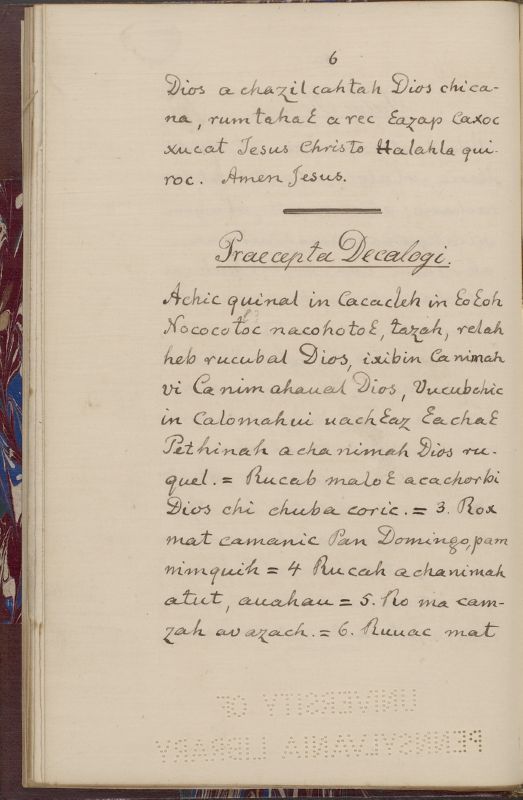 6
Dios a chazil cahtah Dios chica-
na, rumtahaƐ a rec Ɛazap Caxoc
xucat Jesus Christo Halahla qui-
roc. Amen Jesus.
Praecepta Decalogi.
Achic quinal in Cacacleh in ƐoƐoh
Nococotoc nacohotoƐ, tazah, relah
heb rucubal Dios, ixibin Canimah
vi Canim ahaual Dios, Vucubchic
in Calomahui uachƐaz ƐachaƐ
Pethinah achanimah Dios ru-
quel. = Rucab maloƐ acachorbi
Dios chi chuba coric. = 3. Rox
mat camanic Pan Domingo, pam
nimquih = 4 Rucah achanimah
atut, auahau = 5. Ro ma cam-
zah avazach. = 6. Ruuac mat
UNIVERSITY OF
PENNSYLVANIA LIBRARY